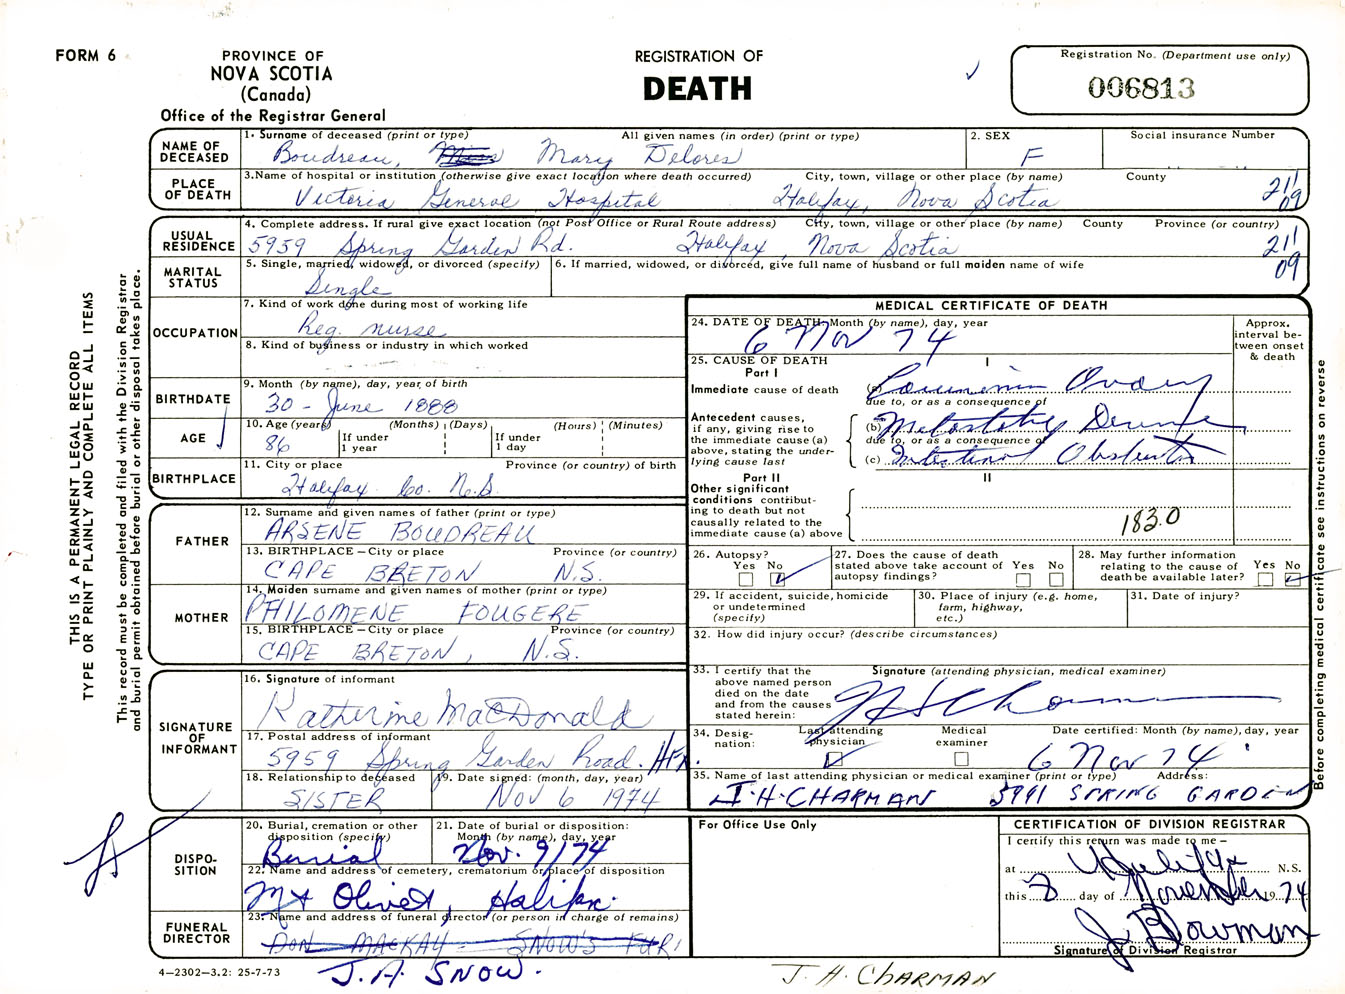 FORM 6
PROVINCE OF
NOVA SCOTIA
(Canada)
Office of the Registrar General
REGISTRATION OF
DEATH
Registration No. (Department use only)
006813
THIS IS A PERMANENT LEGAL RECORD
TYPE OR PRINT PLAINLY AND COMPLETE ALL ITEMS
This record must be completed and filed with the Division Registrar
and burial permit obtained before burial or other disposal takes place.
NAME OF
DECEASED
1. Surname of deceased (print or type) All given names (in order) (print or type)
Boudreau, Miss Mary Delores
2. SEX
F
Social insurance Number
PLACE
OF DEATH
3. Name of hospital or institution (otherwise give exact location where death occurred) City, town, village or other place (by name) County
Victoria General Hospital Halifax, Nova Scotia
211
09
USUAL
RESIDENCE
4. Complete address. If rural give exact location (not Post Office or Rural Route address) City, town, village or other place (by name) County Province (or country)
5959 Spring Garden Rd. Halifax, Nova Scotia
211
09
MARITAL
STATUS
5. Single, married, widowed, or divorced (specify)
Single
6. If married, widowed, or divorced, give full name of husband or full maiden name of wife
OCCUPATION
7. Kind of work done during most of working life
Reg. nurse
8. Kind of business or industry in which worked
BIRTHDATE
9. Month (by name), day, year of birth
30 - June 1888
AGE
10. Age (years) (Months) (Days) (Hours) (Minutes)
86
If under
1 year
If under
1 day
BIRTHPLACE
11. City or place Province (or country) of birth
Halifax Co. N.S.
FATHER
12. Surname and given names of father (print or type)
ARSENE BOUDREAU
13. BIRTHPLACE – City or place Province (or country)
CAPE BRETON N.S.
MOTHER
14. Maiden surname and given names of mother (print or type)
PHILOMENE FOUGERE
15. BIRTHPLACE – City or place Province (or country)
CAPE BRETON, N.S.
SIGNATURE
OF
INFORMANT
16. Signature of informant
Katherine MacDonald
17. Postal address of informant
5959 Spring Garden Road. HFX.
18. Relationship to deceased
SISTER
19. Date signed: (month, day, year)
Nov 6 1974
DISPO-
SITION
20. Burial, cremation or other
disposition (specify)
Burial
21. Date of burial or disposition:
Month (by name), day, year
Nov. 9/74
22. Name and address of cemetery, crematorium or place of disposition
Mt Olivet, Halifax.
FUNERAL
DIRECTOR
23. Name and address of funeral director (or person in charge of remains)
DON MACKAY - SNOW'S FUR.
J.A. SNOW.
4–2302–3.2: 25-7-73
MEDICAL CERTIFICATE OF DEATH
24. DATE OF DEATH: Month (by name), day, year
6 Nov 74
Approx.
interval be-
tween onset
& death
25. CAUSE OF DEATH
Part I
I
Immediate cause of death
(a) Ovary
due to, or as a consequence of
Antecedent causes,
if any, giving rise to
the immediate cause (a)
above, stating the under-
lying cause last
(b)
due to, or as a consequence of
(c) Intestinal
Part II
II
Other significant
conditions contribut-
ing to death but not
causally related to the
immediate cause (a) above
183.0
26. Autopsy?
Yes No
27. Does the cause of death
stated above take account of
autopsy findings?
Yes No
28. May further information
relating to the cause of
death be available later?
Yes No
29. If accident, suicide, homicide
or undetermined
(specify)
30. Place of injury (e.g. home,
farm, highway,
etc.)
31. Date of injury?
32. How did injury occur? (describe circumstances)
33. I certify that the
above named person
died on the date
and from the causes
stated herein:
Signature (attending physician, medical examiner)
34. Desig-
nation:
Last attending
physician
Medical
examiner
Date certified: Month (by name), day, year
6 Nov 74
35. Name of last attending physician or medical examiner (print or type) Address:
J.H. CHARMAN 5991 SPRING GARDEN
Before completing medical certificate see instructions on reverse
For Office Use Only
CERTIFICATION OF DIVISION REGISTRAR
I certify this return was made to me –
at Halifax N.S.
this 8 day of November 1974
J. Bowman
Signature of Division Registrar
J. H. CHARMAN